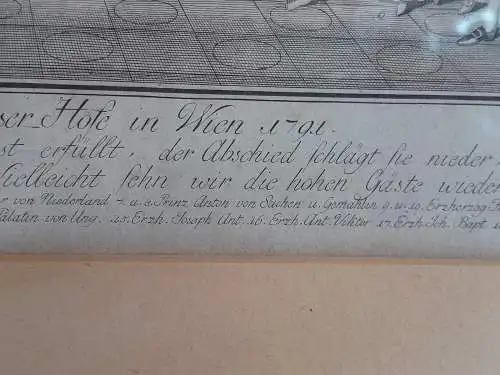 ser Hofe in Wien 1791.
st erfüllt, der Abschied schlägt sie nieder
Vielleicht sehn wir die hohen Gäste wieder
r von Niederland 7. u. 8. Prinz Anton von Sachen u. Gemahlin 9. u. 10. Erzherzog F
Palatin von Ung. 15. Erzh. Joseph Ant. 16. Erzh. Ant. Viktor 17. Erzh. Joh. Bapt. 1